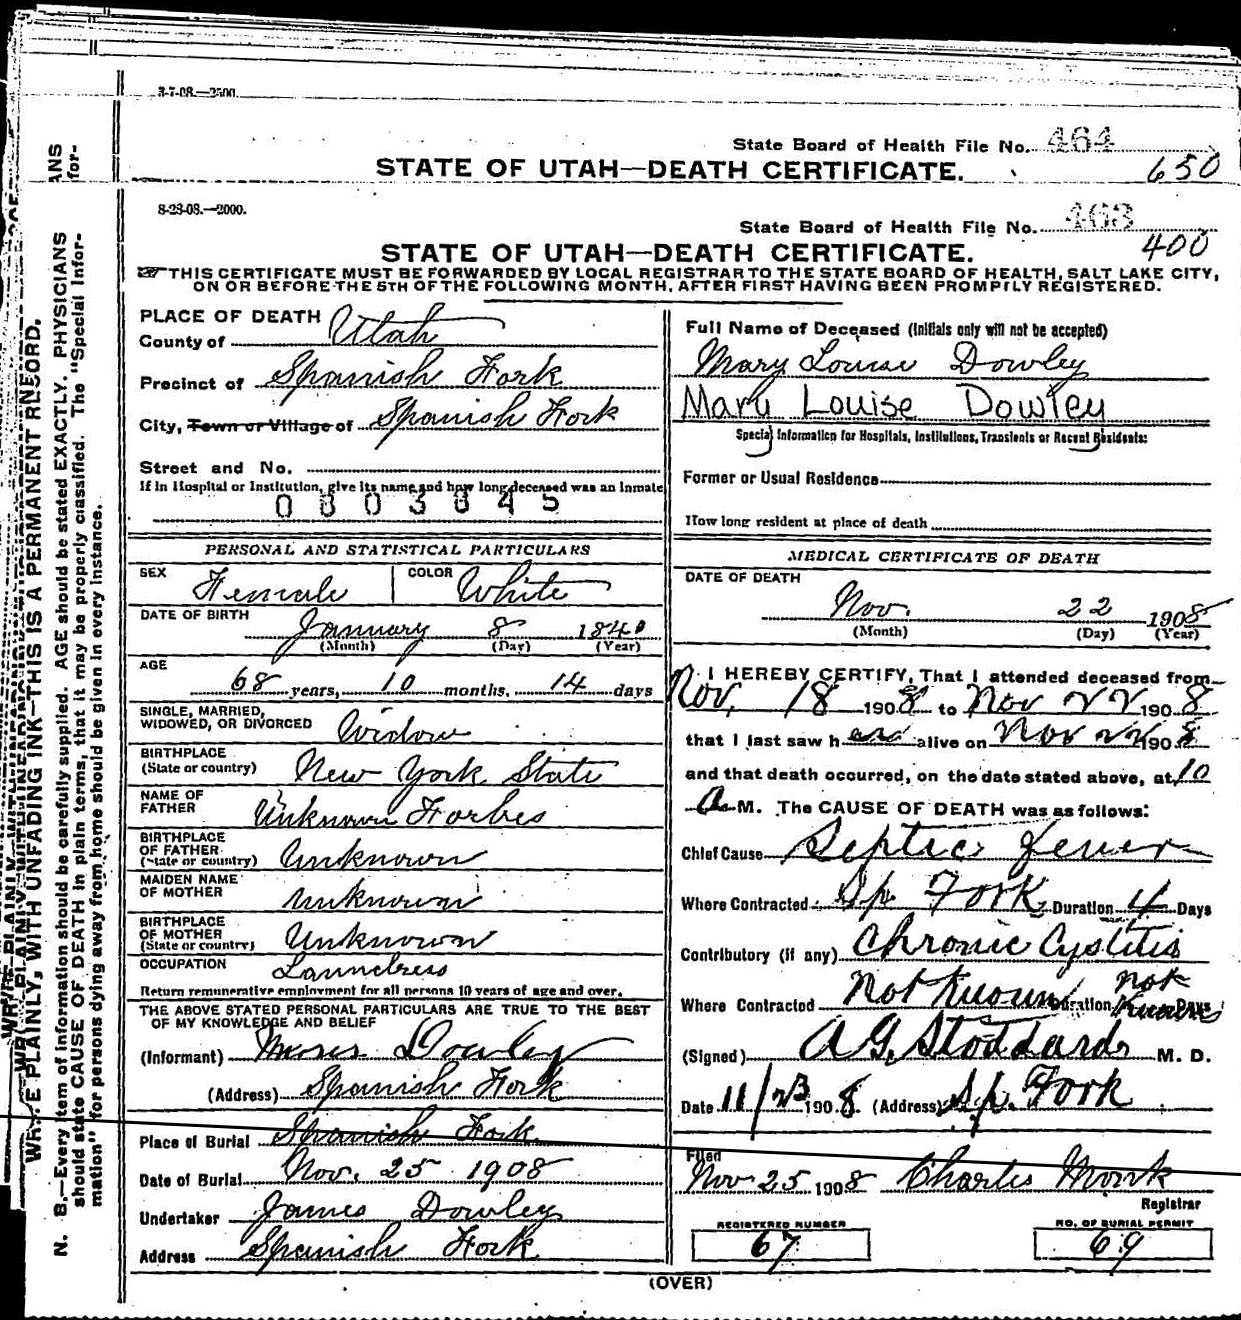 3-7-08.—2500.
State Board of Health File No. 464
STATE OF UTAH—DEATH CERTIFICATE.
650
8-28-08.—2000.
State Board of Health File No. 463
STATE OF UTAH—DEATH CERTIFICATE.
400
☞THIS CERTIFICATE MUST BE FORWARDED BY LOCAL REGISTRAR TO THE STATE BOARD OF HEALTH, SALT LAKE CITY,
ON OR BEFORE THE 5TH OF THE FOLLOWING MONTH, AFTER FIRST HAVING BEEN PROMPTLY REGISTERED.
PLACE OF DEATH
County of Utah
Precinct of Spanish Fork
City, Town or Village of Spanish Fork
Street and No.
If in Hospital or Institution, give its name and how long deceased was an inmate
0803845
PERSONAL AND STATISTICAL PARTICULARS
SEX Female COLOR White
DATE OF BIRTH
January 8 1840
(Month) (Day) (Year)
AGE
68 years, 10 months, 14 days
SINGLE, MARRIED,
WIDOWED, OR DIVORCED Widow
BIRTHPLACE
(State or country) New York State
NAME OF
FATHER Unknown Forbes
BIRTHPLACE
OF FATHER
(State or country) Unknown
MAIDEN NAME
OF MOTHER Unknown
BIRTHPLACE
OF MOTHER
(State or country) Unknown
OCCUPATION Laundress
Return remunerative employment for all persons 10 years of age and over.
THE ABOVE STATED PERSONAL PARTICULARS ARE TRUE TO THE BEST
OF MY KNOWLEDGE AND BELIEF
(Informant) Moses Dowley
(Address) Spanish Fork
Place of Burial Spanish Fork
Date of Burial Nov. 25 1908
Undertaker James Dowley
Address Spanish Fork
Full Name of Deceased (Initials only will not be accepted)
Mary Louise Dowley
Mary Louise Dowley
Special Information for Hospitals, Institutions, Transients or Recent Residents:
Former or Usual Residence
How long resident at place of death
MEDICAL CERTIFICATE OF DEATH
DATE OF DEATH
Nov. 22 1908
(Month) (Day) (Year)
I HEREBY CERTIFY, That I attended deceased from
Nov. 18 1908 to Nov 22 1908
that I last saw her alive on Nov 22 1908
and that death occurred, on the date stated above, at 10
A M. The CAUSE OF DEATH was as follows:
Chief Cause Septic fever
Where Contracted Sp. Fork Duration 4 Days
Contributory (if any) Chronic Cystitis
Where Contracted Not Known Duration not Known Days
(Signed) A G. Stoddard M. D.
Date 11/23 1908. (Address) Sp. Fork
Filed
Nov 25 1908 Charles Monk
Registrar
REGISTERED NUMBER
67
NO. OF BURIAL PERMIT
69
(OVER)
WRITE PLAINLY, WITH UNFADING INK—THIS IS A PERMANENT RECORD.
N. B.—Every item of information should be carefully supplied. AGE should be stated EXACTLY. PHYSICIANS
should state CAUSE OF DEATH in plain terms, that it may be properly classified. The "Special Infor-
mation" for persons dying away from home should be given in every instance.